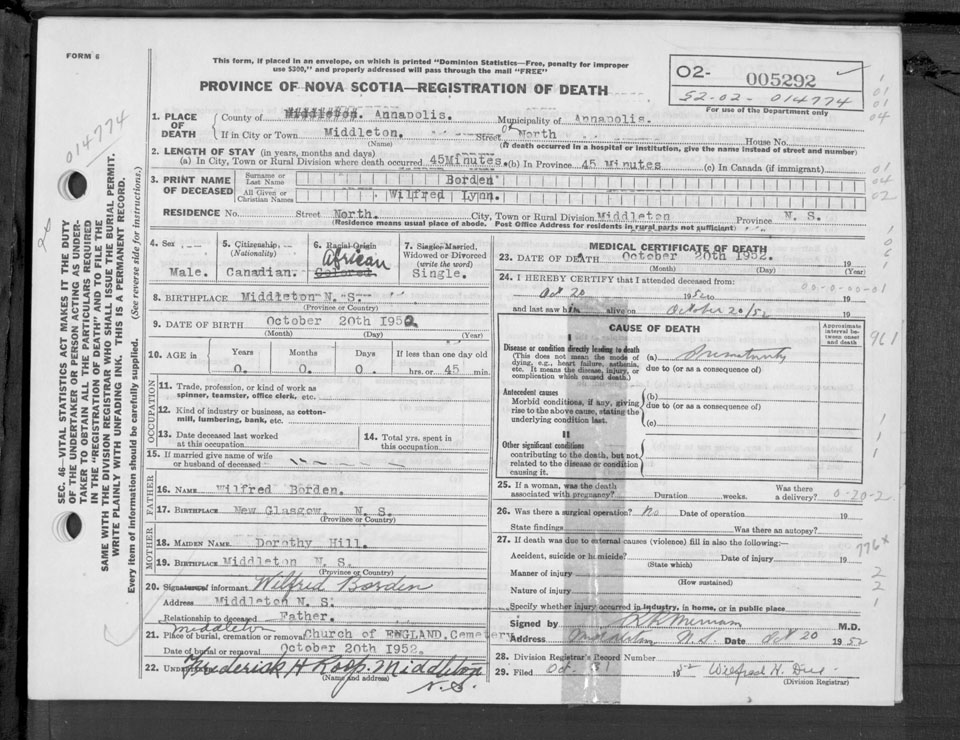 FORM 6
This form, if placed in an envelope, on which is printed "Dominion Statistics—Free, penalty for improper
use $300," and properly addressed will pass through the mail "FREE"
PROVINCE OF NOVA SCOTIA—REGISTRATION OF DEATH
02- 005292
52-02-014774
For use of the Department only
014774
SEC. 46—VITAL STATISTICS ACT MAKES IT THE DUTY
OF THE UNDERTAKER OR PERSON ACTING AS UNDER-
TAKER TO OBTAIN ALL THE PARTICULARS REQUIRED
IN THE "REGISTRATION OF DEATH" AND TO FILE THE
SAME WITH THE DIVISION REGISTRAR WHO SHALL ISSUE THE BURIAL PERMIT.
WRITE PLAINLY WITH UNFADING INK. THIS IS A PERMANENT RECORD.
Every item of information should be carefully supplied. (See reverse side for instructions.)
1. PLACE OF DEATH
County of Middleton. Annapolis. Municipality of Annapolis.
If in City or Town Middleton. Street North House No.
(Name) (If death occurred in a hospital or institution, give the name instead of street and number)
2. LENGTH OF STAY (in years, months and days)
(a) In City, Town or Rural Division where death occurred 45Minutes. (b) In Province 45 Minutes (c) In Canada (if immigrant)
3. PRINT NAME OF DECEASED
Surname or Last Name Borden
All Given or Christian Names Wilfred Lynn.
RESIDENCE No. Street North. City, Town or Rural Division Middleton Province N. S.
(Residence means usual place of abode. Post Office Address for residents in rural parts not sufficient)
4. Sex
Male.
5. Citizenship
(Nationality)
Canadian.
6. Racial Origin
African
Colored.
7. Single, Married,
Widowed or Divorced
(write the word)
Single.
8. BIRTHPLACE Middleton N. S.
(Province or Country)
9. DATE OF BIRTH October 20th 1952
(Month) (Day) (Year)
10. AGE in Years Months Days If less than one day old
0. 0. 0. hrs. or 45 min.
OCCUPATION
11. Trade, profession, or kind of work as
spinner, teamster, office clerk, etc.
12. Kind of industry or business, as cotton-
mill, lumbering, bank, etc.
13. Date deceased last worked
at this occupation
14. Total yrs. spent in
this occupation
15. If married give name of wife
or husband of deceased
FATHER
16. NAME Wilfred Borden.
17. BIRTHPLACE New Glasgow, N. S.
(Province or Country)
MOTHER
18. MAIDEN NAME Dorothy Hill.
19. BIRTHPLACE Middleton N. S.
(Province or Country)
20. Signature of informant Wilfred Borden
Address Middleton N. S.
Relationship to deceased Father.
Middleton
21. Place of burial, cremation or removal Church of ENGLAND. Cemetery
Date of burial or removal October 20th 1952.
22. Undertaker Frederick H Roop. Middleton
N.S.
(Name and address)
MEDICAL CERTIFICATE OF DEATH
23. DATE OF DEATH October 20th 1952. 19
(Month) (Day) (Year)
24. I HEREBY CERTIFY that I attended deceased from:
Oct 20 19 19
and last saw him alive on October 20/52 19
CAUSE OF DEATH
Approximate interval between onset and death
I
Disease or condition directly leading to death
(This does not mean the mode of
dying, e.g., heart failure, asthenia,
etc. It means the disease, injury, or
complication which caused death.)
(a) Prematurity
due to (or as a consequence of)
Antecedent causes
Morbid conditions, if any, giving
rise to the above cause, stating the
underlying condition last.
(b)
due to (or as a consequence of)
(c)
II
Other significant conditions
contributing to the death, but not
related to the disease or condition
causing it.
25. If a woman, was the death
associated with pregnancy? Duration weeks. Was there a delivery?
0-20-2
26. Was there a surgical operation? No Date of operation 19
State findings Was there an autopsy?
27. If death was due to external causes (violence) fill in also the following:—
776x
Accident, suicide or homicide? Date of injury 19
(State which)
Manner of injury
(How sustained)
Nature of injury
Specify whether injury occurred in industry, in home, or in public place
Signed by M.D.
Address Middleton N.S. Date Oct 20 1952
28. Division Registrar's Record Number
29. Filed Oct. 31 1952 Wilfred H.
(Division Registrar)